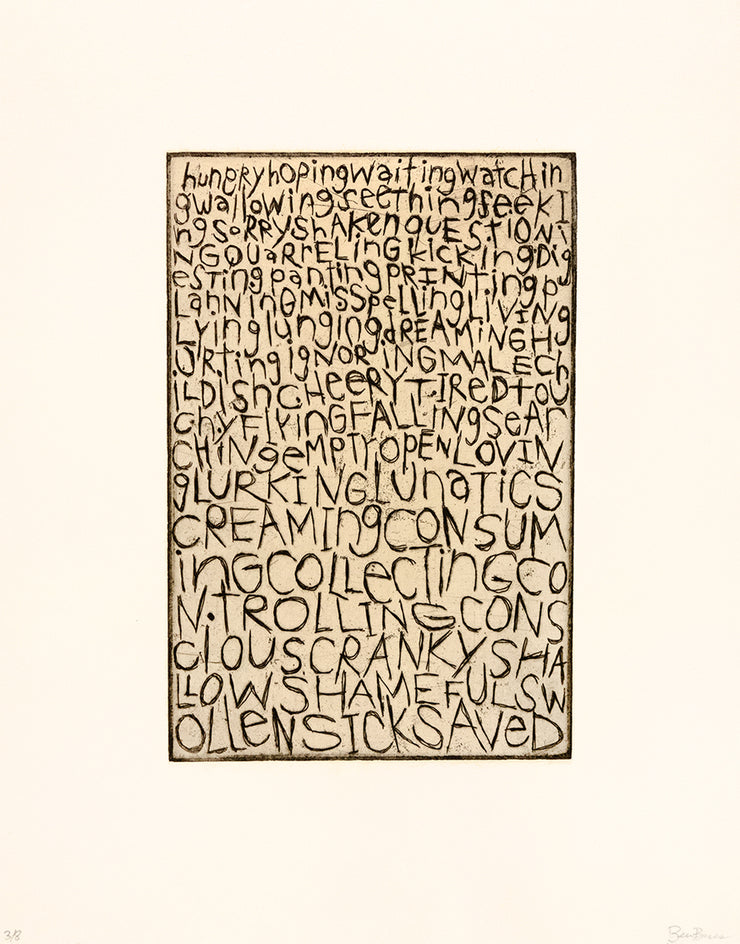 hungryhopingwaitingwatcHin
gwallowingseethingseekI
ngsoRRYsHAKenqUESTIONI
NGQUaRRELiNGkickingDig
esTingpantingPRINTingpu
LaNNINGMISSpellingLIVING
LYinglungingdREAMiNGHU
URTingIGNORINGMALECh
iLDishCHEERYTIReDtoU
chyFlYiNGFALLiNGseaR
CHiNgeMPTYOPENLOVIN
gLURKINGlUnaTiCS
CREAMIngCONSUM
inGCOLLecTinGCO
N.TROLLING.CONS
CIOUSCRANKYSHA
LLOWSHAMEFULSW
OLLeNSICKSAVeD
3/8